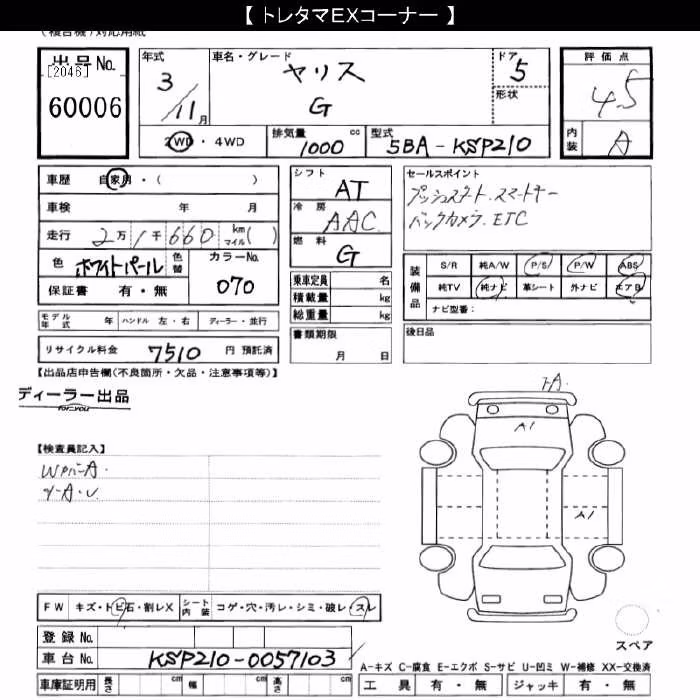 【 トレタマEXコーナー 】
(複合機)対応用紙
出品No.
[2046]
60006
年式
3
/11月
車名・グレード
ヤリス
G
ドア
5
形状
評価点
4.5
内装
A
2WD・4WD
排気量 1000 cc
型式 5BA-KSP210
車歴 自家用・( )
車検 年 月
走行 2万1千660 km マイル( )
色 ホワイトパール 色替
カラーNo.
070
保証書 有・無
シフト AT
冷房 AAC
燃料 G
乗車定員 名
積載量 kg
総重量 kg
書類期限
月 日
セールスポイント
プッシュスタート、スマートキー
バックカメラ、ETC
装備品
S/R 純A/W P/S P/W ABS
純TV 純ナビ 革シート 外ナビ エアB
ナビ型番：
後日品
モデル年式 年 ハンドル 左・右 ディーラー・並行
リサイクル料金 7510 円 預託済
【出品店申告欄(不良箇所・欠品・注意事項等)】
ディーラー出品
for you
【検査員記入】
A1
A1
FW キズ・トビ石・割レX シート内装 コゲ・穴・汚レ・シミ・破レ・スレ
登録No.
車台No. KSP210-0057103
スペア
A-キズ C-腐食 E-エクボ S-サビ U-凹ミ W-補修 XX-交換済
車庫証明用 長さ cm 幅 cm 高さ cm
工具 有・無 ジャッキ 有・無